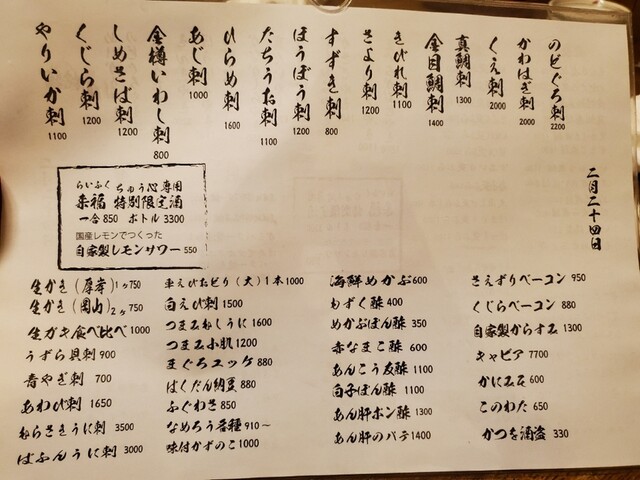 二月二十四日
のどぐろ刺 2200
かわはぎ刺 2000
くえ刺 2000
真鯛刺 1300
金目鯛刺 1400
きびれ刺 1100
さより刺 1200
すずき刺 800
ほうぼう刺 1200
たちうお刺 1100
ひらめ刺 1600
あじ刺 1000
金樽いわし刺 800
しめさば刺 1200
くじら刺 1200
やりいか刺 1100
らいふく ちゅう心専用
来福 特別限定酒
一合850 ボトル3300
国産レモンでつくった
自家製レモンサワー550
生かき(厚岸)1ヶ750
生かき(岡山)2ヶ750
生ガキ食べ比べ1000
うずら貝刺900
青やぎ刺 700
あわび刺 1650
むらさきうに刺 3500
ばふんうに刺 3000
車えびおどり(大)1本1000
白えび刺1500
つまみむしうに1600
つまみ小肌1200
まぐろユッケ880
ばくだん納豆880
ふぐわさ850
なめろう各種910~
味付かずのこ1000
海鮮めかぶ600
もずく酢400
めかぶぽん酢 350
赤なまこ酢 600
あんこう友酢1100
白子ぽん酢 1100
あん肝ポン酢1300
あん肝のパテ1400
さえずりベーコン 950
くじらベーコン 880
自家製からすみ1300
キャビア7700
かにみそ600
このわた 650
かつを酒盗 330